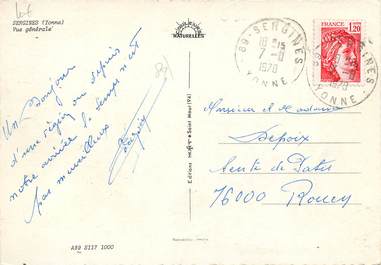 SERGINES (Yonne)
Vue générale
NATURELLES
Un Bonjour
d'une région où depuis
notre arrivée le temps n'est
pas merveilleux
89
Editions
Saint Maur (Va)
A89 S117 1000
89 - SERGINES
18 H 15
1978
YONNE
FRANCE
1,20
Monsieur et Madame
Depoix
Sente de Patis
76000 Rouen